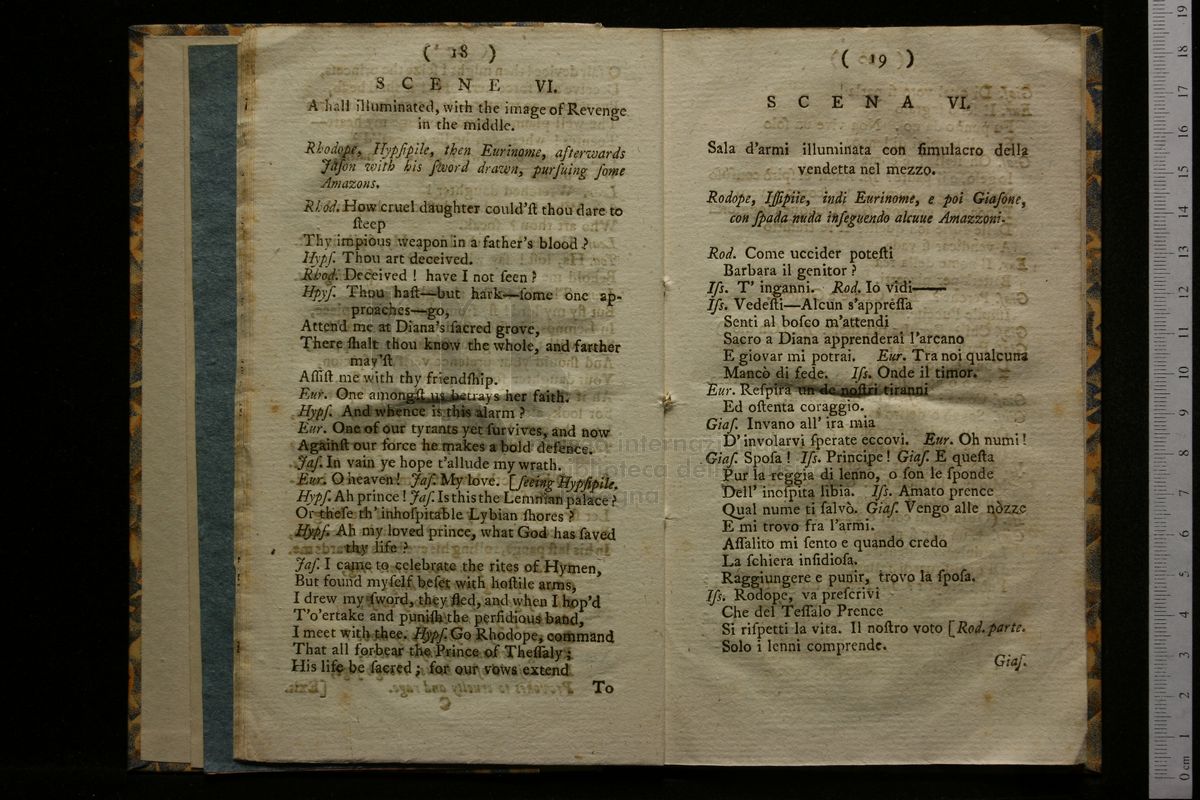 ( 18 )
SCENE VI.
A hall illuminated, with the image of Revenge
in the middle.
Rhodope, Hypſipile, then Eurinome, afterwards
Jaſon with his ſword drawn, purſuing ſome
Amazons.
Rhod. How cruel daughter could'ſt thou dare to
ſteep
Thy impious weapon in a father's blood ?
Hypſ. Thou art deceived.
Rhod. Deceived ! have I not ſeen ?
Hpyſ. Thou haſt—but hark—ſome one ap-
proaches—go,
Attend me at Diana's ſacred grove,
There ſhalt thou know the whole, and farther
may'ſt
Aſſiſt me with thy friendſhip.
Eur. One amongſt us betrays her faith.
Hypſ. And whence is this alarm ?
Eur. One of our tyrants yet ſurvives, and now
Againſt our force he makes a bold defence.
Jaſ. In vain ye hope t'allude my wrath.
Eur. O heaven! Jaſ. My love. [ſeeing Hypſipile.
Hypſ. Ah prince ! Jaſ. Is this the Lemnian palace ?
Or theſe th' inhoſpitable Lybian ſhores ?
Hypſ. Ah my loved prince, what God has ſaved
thy life ?
Jaſ. I came to celebrate the rites of Hymen,
But found myſelf beſet with hoſtile arms,
I drew my ſword, they fled, and when I hop'd
T'o'ertake and puniſh the perfidious band,
I meet with thee. Hypſ. Go Rhodope, command
That all forbear the Prince of Theſſaly ;
His life be ſacred ; for our vows extend
To
C
( 19 )
SCENA VI.
Sala d'armi illuminata con ſimulacro della
vendetta nel mezzo.
Rodope, Iſſipiie, indi Eurinome, e poi Giaſone,
con ſpada nuda inſeguendo alcuue Amazzoni.
Rod. Come uccider poteſti
Barbara il genitor ?
Iſs. T' inganni. Rod. Io vidi——
Iſs. Vedeſti—Alcun s'appreſſa
Senti al boſco m'attendi
Sacro a Diana apprenderai l'arcano
E giovar mi potrai. Eur. Tra noi qualcuna
Mancò di fede. Iſs. Onde il timor.
Eur. Reſpira un de noſtri tiranni
Ed oſtenta coraggio.
Giaſ. Invano all' ira mia
D' involarvi ſperate eccovi. Eur. Oh numi !
Giaſ. Spoſa ! Iſs. Principe ! Giaſ. E queſta
Pur la reggia di lenno, o ſon le ſponde
Dell' inoſpita libia. Iſs. Amato prence
Qual nume ti ſalvò. Giaſ. Vengo alle nòzze
E mi trovo fra l'armi.
Aſſalito mi ſento e quando credo
La ſchiera inſidioſa.
Raggiungere e punir, trovo la ſpoſa.
Iſs. Rodope, va preſcrivi
Che del Teſſalo Prence
Si riſpetti la vita. Il noſtro voto [Rod. parte.
Solo i lenni comprende.
Giaſ.